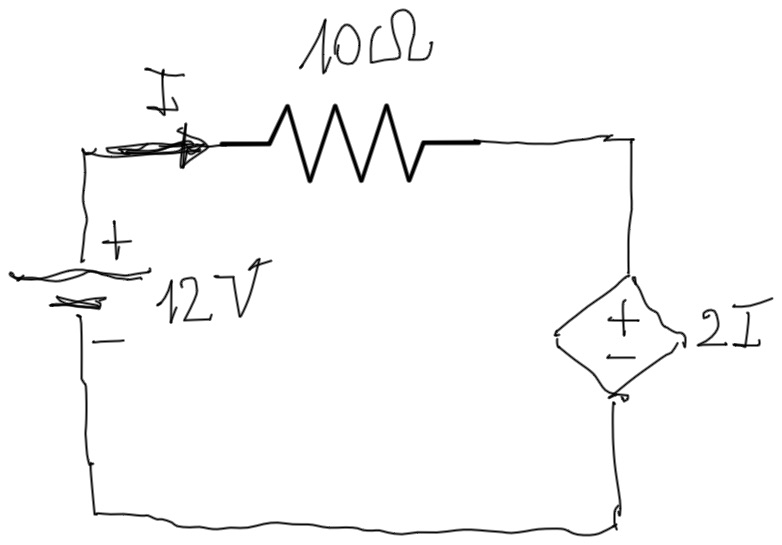 10Ω
I
+
12V
−
+
−
2I